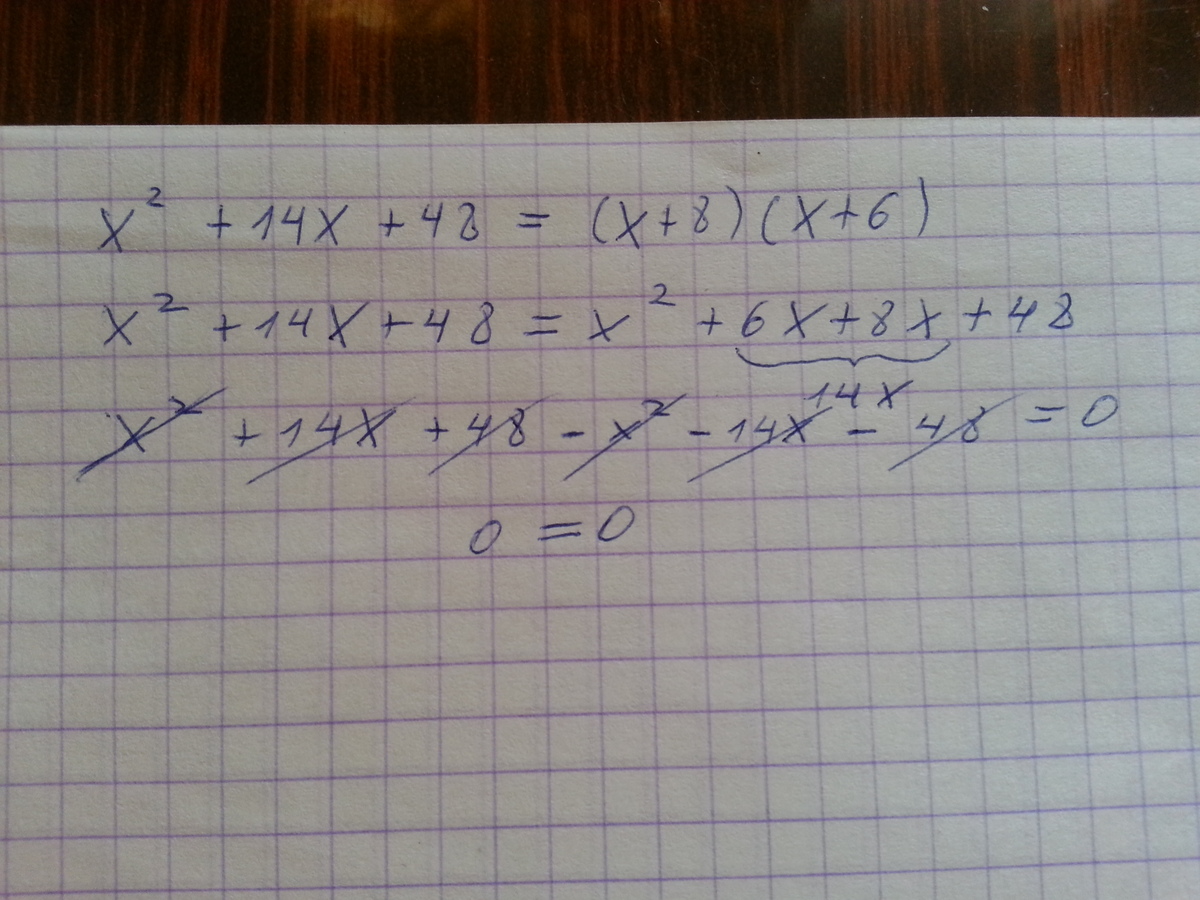 x² + 14x + 48 = (x+8)(x+6)
x² + 14x + 48 = x² + 6x + 8x + 48
14x
x² + 14x + 48 - x² - 14x - 48 = 0
0 = 0